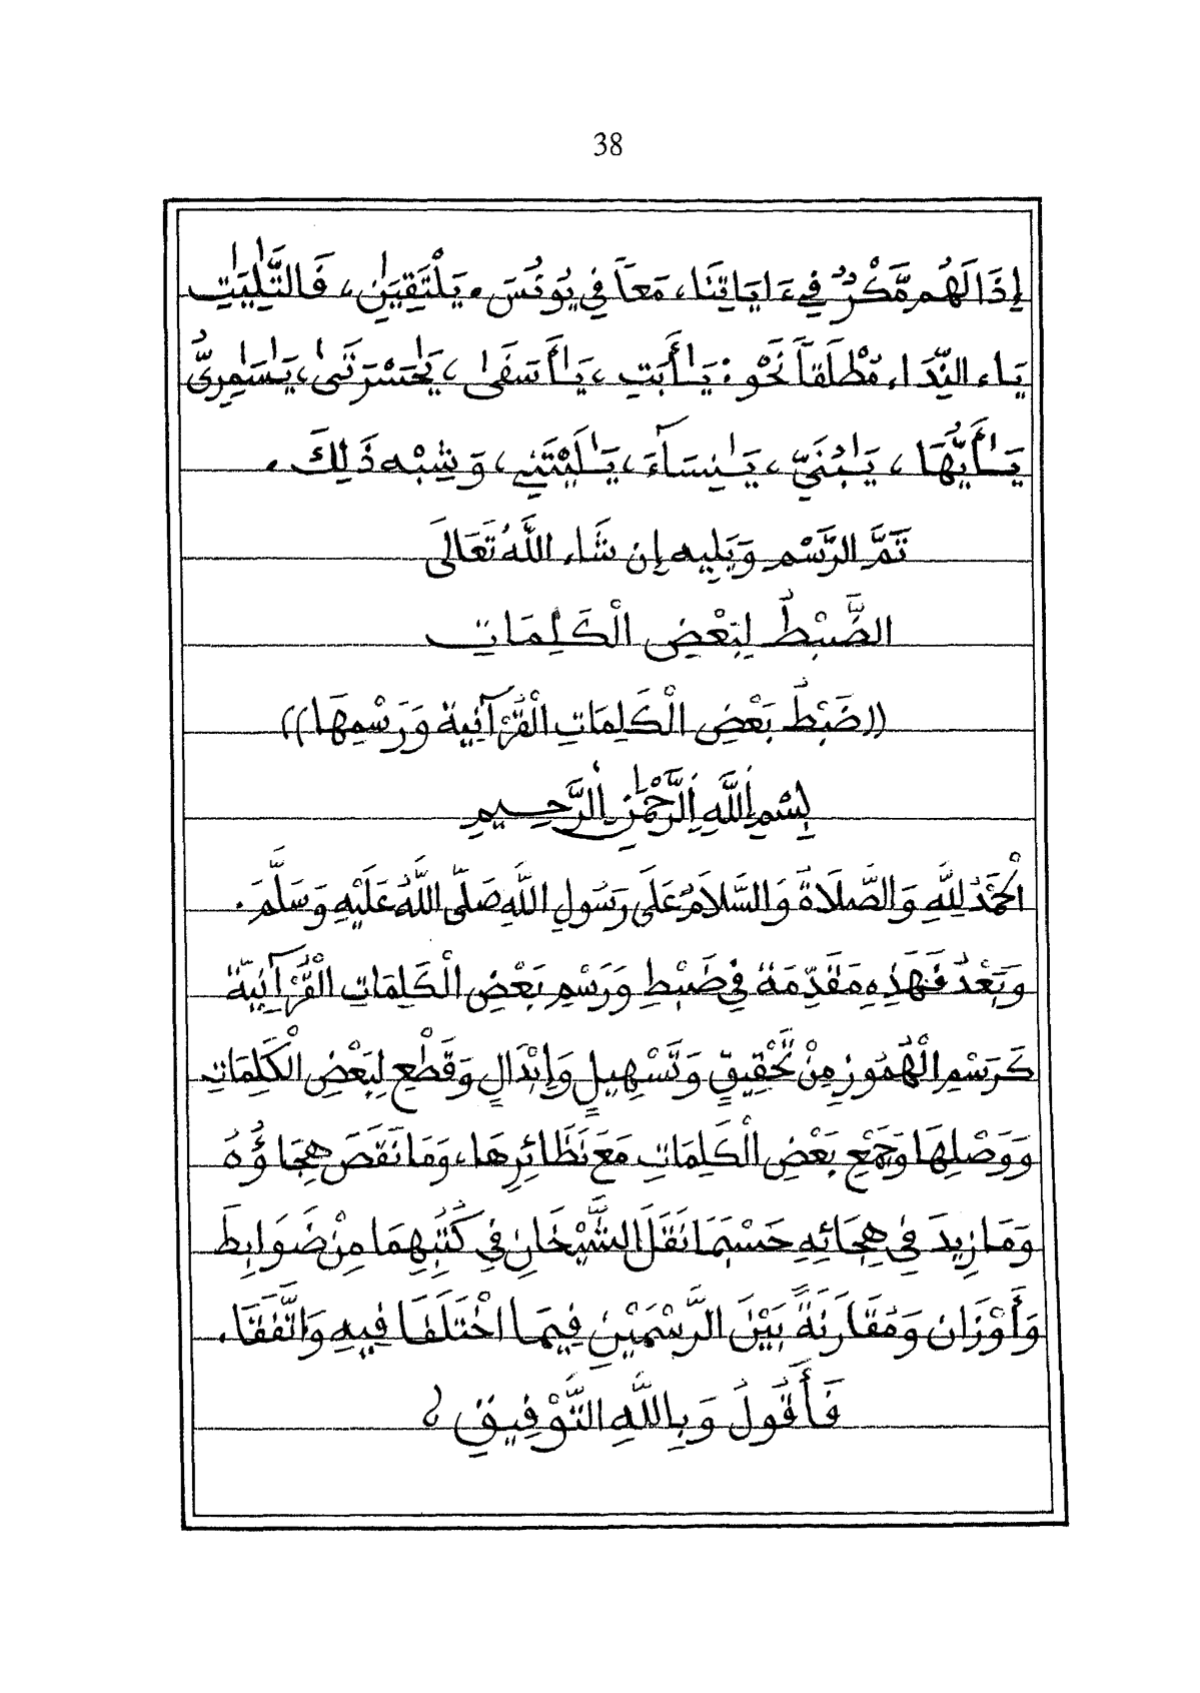 38
إِذَا لَهُم مَّكْرٌ فِي ءَايَاتِنَا، مَعاً فِي يُونُسَ. يَلْتَقِيَٰنِ، فَالتَّٰلِيَٰتِ
يَاء النِّدَاء مُطْلَقاً نَحْوَ: يَٰأَبَتِ، يَٰأَسَفَىٰ، يَٰحَسْرَتَىٰ، يَٰسَٰمِرِيُّ
يَٰأَيُّهَا، يَٰبُنَيِّ، يَٰنِسَآءَ، يَٰلَيْتَنِي، وَشِبْهِ ذَلِكَ.
تَمَّ الرَّسْمِ وَيَلِيهِ إِن شَاء اللَّهُ تَعَالَى
الضَّبْطُ لِبَعْضِ الْكَلِمَاتِ
((ضَبْطُ بَعْضِ الْكَلِمَاتِ الْقُرْآنِيَةِ وَرَسْمِهَا))
بِسْمِ اللَّهِ الرَّحْمَٰنِ الرَّحِيمِ
الْحَمْدُ لِلَّهِ وَالصَّلَاةُ وَالسَّلَامُ عَلَى رَسُولِ اللَّهِ صَلَّى اللَّهُ عَلَيْهِ وَسَلَّمَ.
وَبَعْدُ فَهَذِهِ مُقَدِّمَةٌ فِي ضَبْطِ وَرَسْمِ بَعْضِ الْكَلِمَاتِ الْقُرْآنِيَّةِ
كَرَسْمِ الْهُمُوزِ مِنْ تَحْقِيقٍ وَتَسْهِيلٍ وَإِبْدَالٍ وَقَطْعِ لِبَعْضِ الْكَلِمَاتِ
وَوَصْلِهَا وَجَمْعِ بَعْضِ الْكَلِمَاتِ مَعَ نَظَائِرِهَا، وَمَا نَقَصَ هِجَاؤُهُ
وَمَا زِيدَ فِي هِجَائِهِ حَسْبَمَا نَقَلَ الشَّيْخَانِ فِي كُتُبِهِمَا مِنْ ضَوَابِطَ
وَأَوْزَانٍ وَمُقَارَنَةً بَيْنَ الرَّسْمَيْنِ فِيمَا اخْتَلَفَا فِيهِ وَاتَّفَقَا.
فَأَقُولُ وَبِاللَّهِ التَّوْفِيقِ